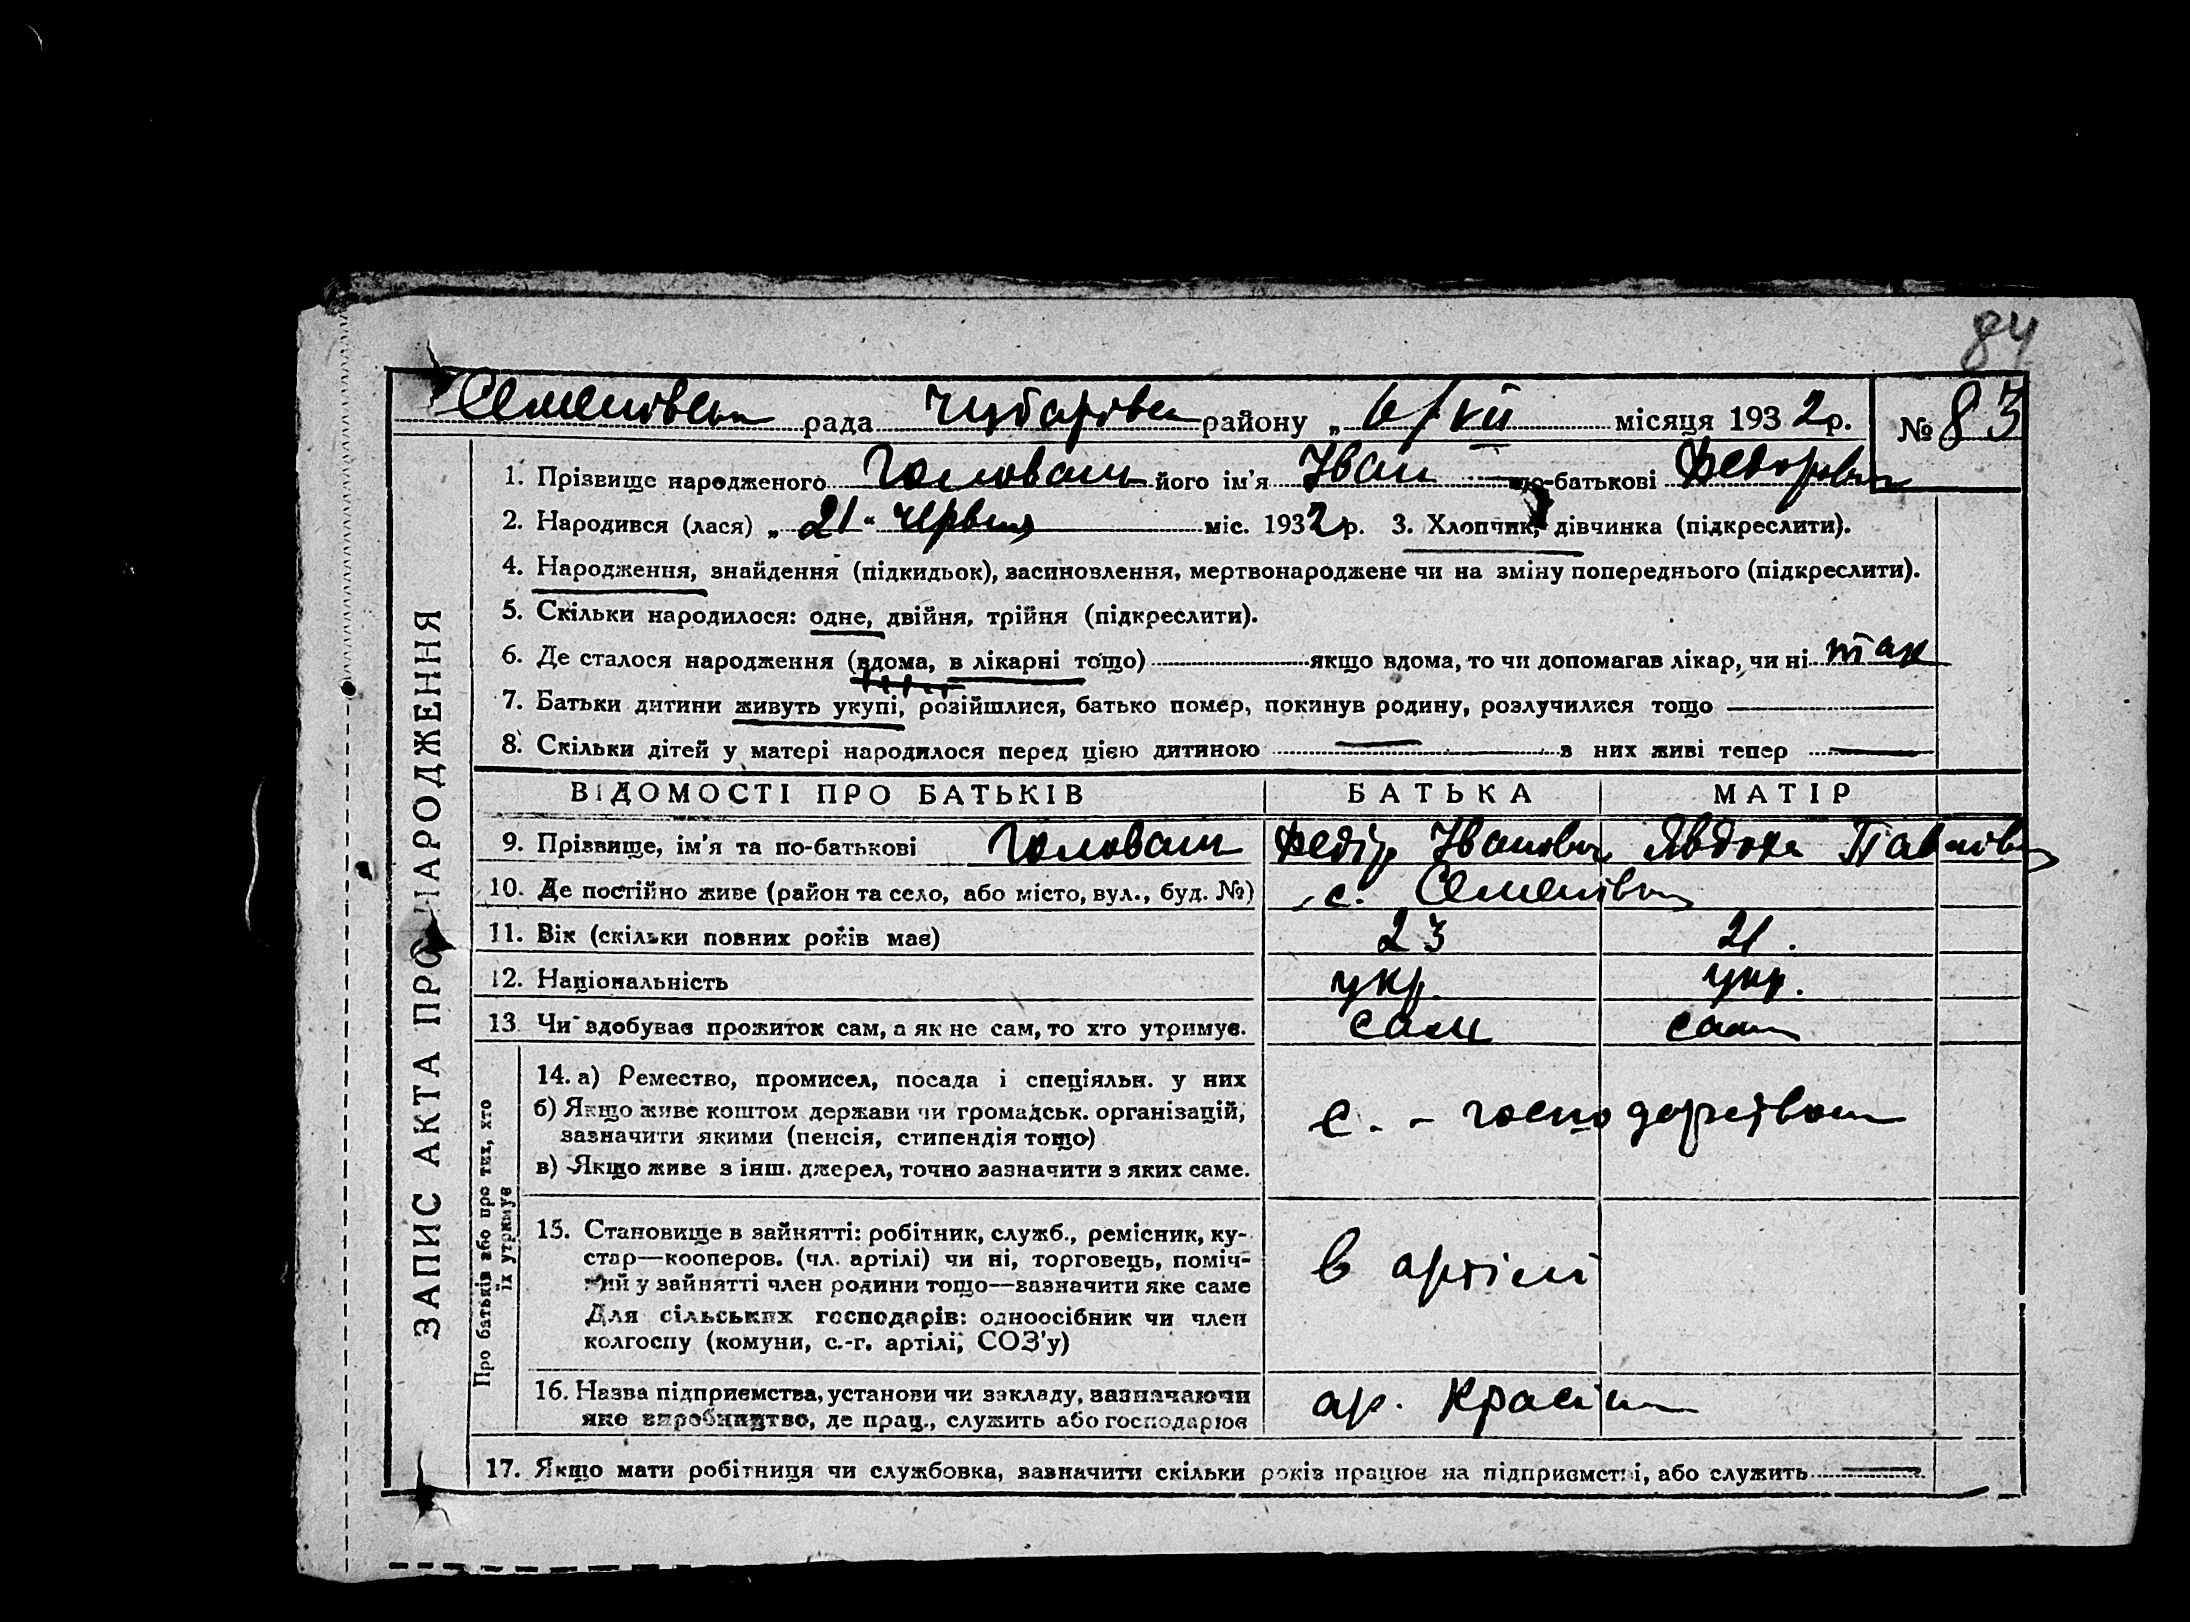 84
Семенівська рада Чубарівськ району „ 6/VII місяця 1932 р. № 83
1. Прізвище народженого Головаш його ім'я Іван по-батькові Федорович
2. Народився (лася) „ 21 " червня міс. 1932 р. 3. Хлопчик, дівчинка (підкреслити).
4. Народження, знайдення (підкидьок), засиновлення, мертвонароджене чи на зміну попереднього (підкреслити).
5. Скільки народилося: одне, двійня, трійня (підкреслити).
6. Де сталося народження (вдома, в лікарні тощо) якщо вдома, то чи допомагав лікар, чи ні так
7. Батьки дитини живуть укупі, розійшлися, батько помер, покинув родину, розлучилися тощо —
8. Скільки дітей у матері народилося перед цією дитиною — з них живі тепер —
ВІДОМОСТІ ПРО БАТЬКІВ БАТЬКА МАТІР
9. Прізвище, ім'я та по-батькові Головаш Федір Іванович Явдоха Павлівн
10. Де постійно живе (район та село, або місто, вул., буд. №) с. Семенівка
11. Вік (скільки повних років має) 23 21.
12. Національність укр. укр.
13. Чи здобуває прожиток сам, а як не сам, то хто утримує. сам сама
14. а) Ремество, промисел, посада і спеціяльн. у них
б) Якщо живе коштом держави чи громадськ. організацій,
зазначити якими (пенсія, стипендія тощо)
в) Якщо живе з інш. джерел, точно зазначити з яких саме.
с. - господарством
15. Становище в зайнятті: робітник, служб., ремісник, ку-
стар—кооперов. (чл. артілі) чи ні, торговець, поміч-
ний у зайнятті член родини тощо—зазначити яке саме
Для сільських господарів: одноосібник чи член
колгоспу (комуни, с.-г. артілі, СОЗ'у)
в артілі
16. Назва підприємства, установи чи закладу, зазначаючи
яке виробництво, де прац., служить або господарює
ар.
17. Якщо мати робітниця чи службовка, зазначити скільки років працює на підприємстві, або служить —
ЗАПИС АКТА ПРО НАРОДЖЕННЯ
Про батьків або про тих, хто
їх утримує